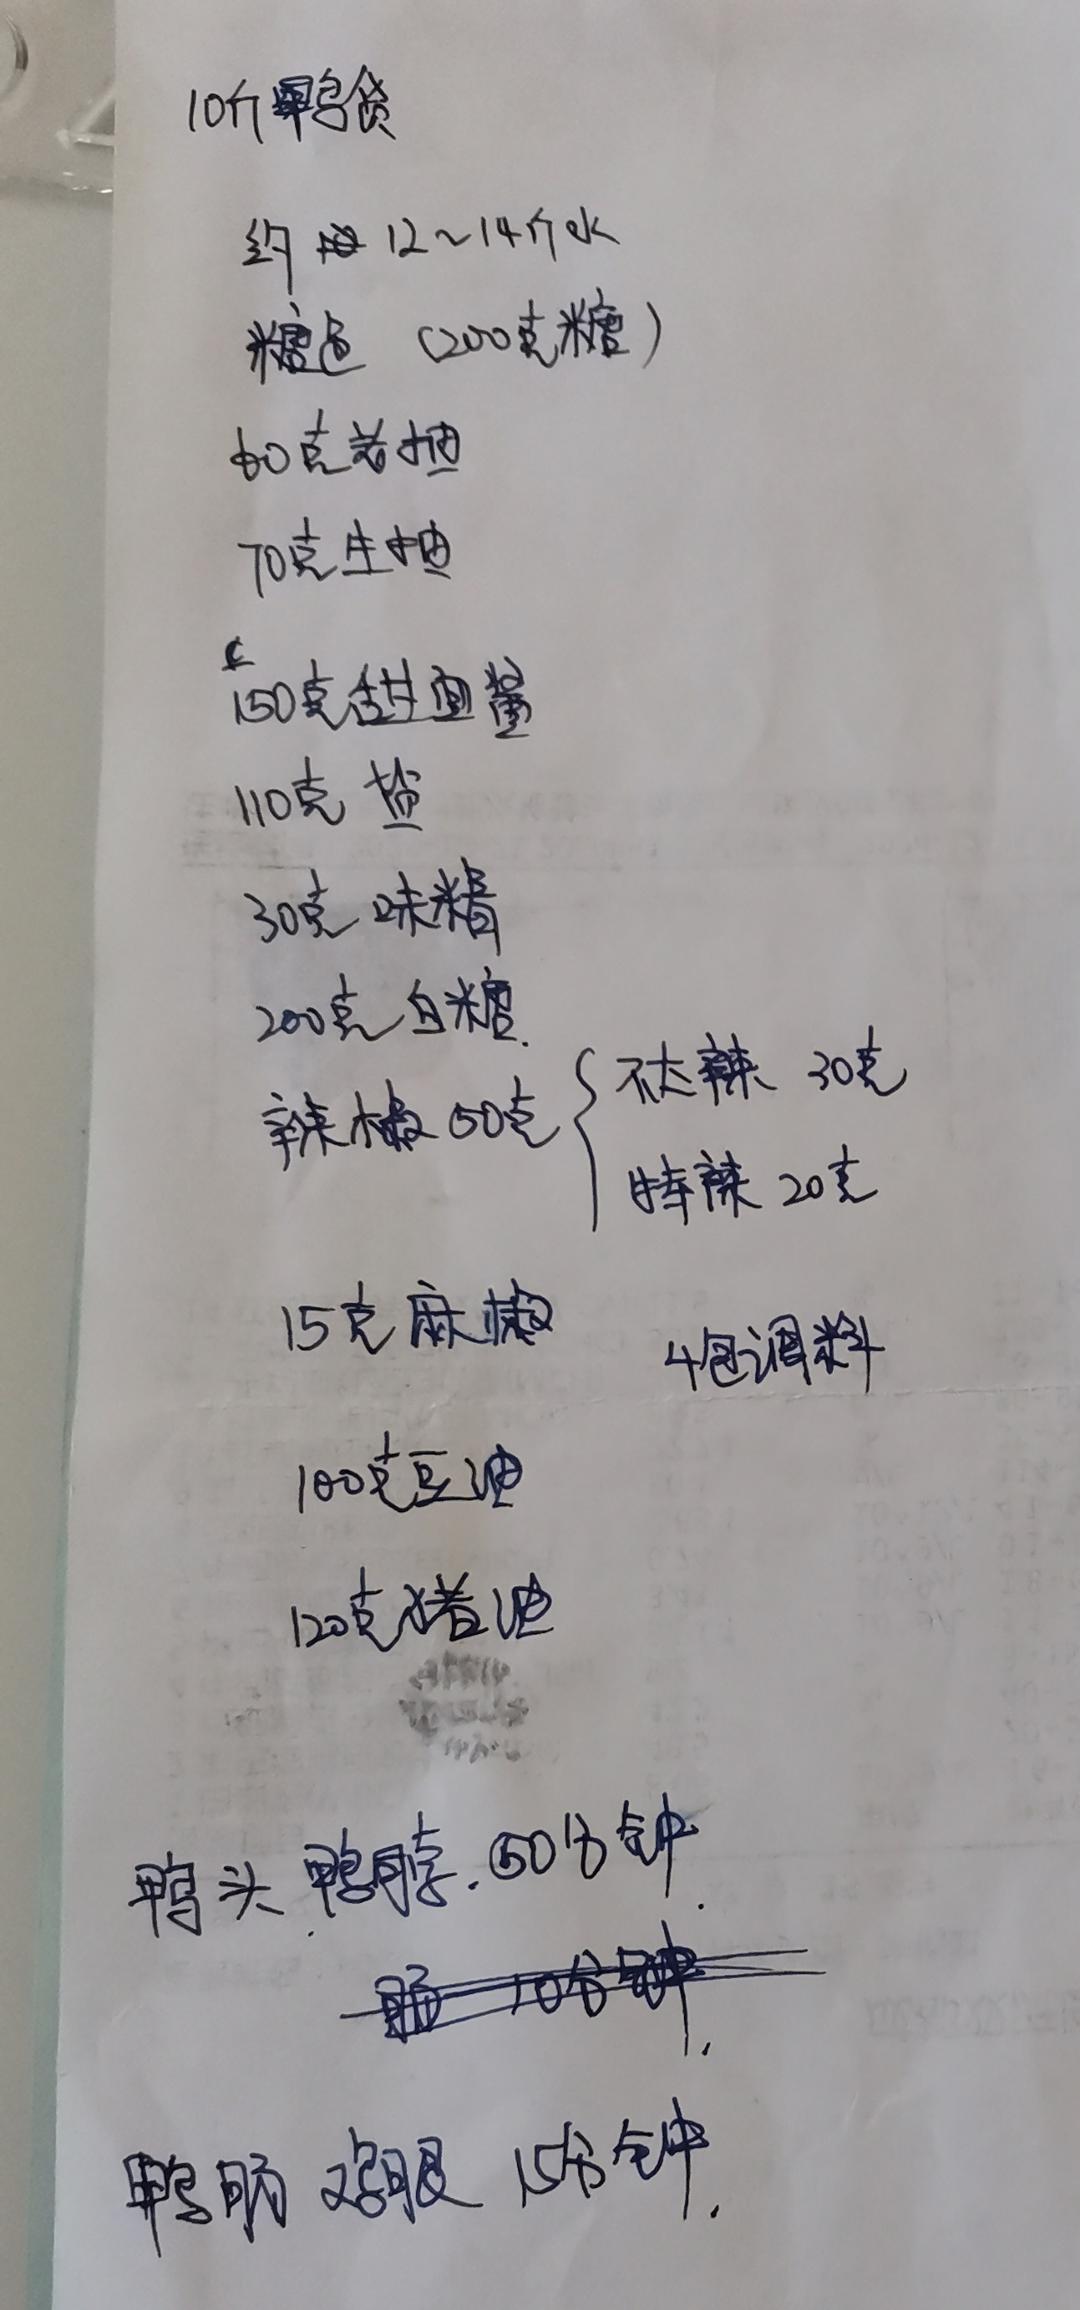 10斤鸭货
约 12~14斤水
糖色 (200克糖)
60克老抽
70克生抽
150克甜面酱
110克 盐
30克 味精
200克 白糖.
辣椒 50克 { 不太辣 30克
特辣 20克
15克 麻椒
4包调料
100克豆油
120克猪油
鸭头 鸭脖. 50分钟.
肠 10分钟.
鸭肠 鸡腿 15分钟.